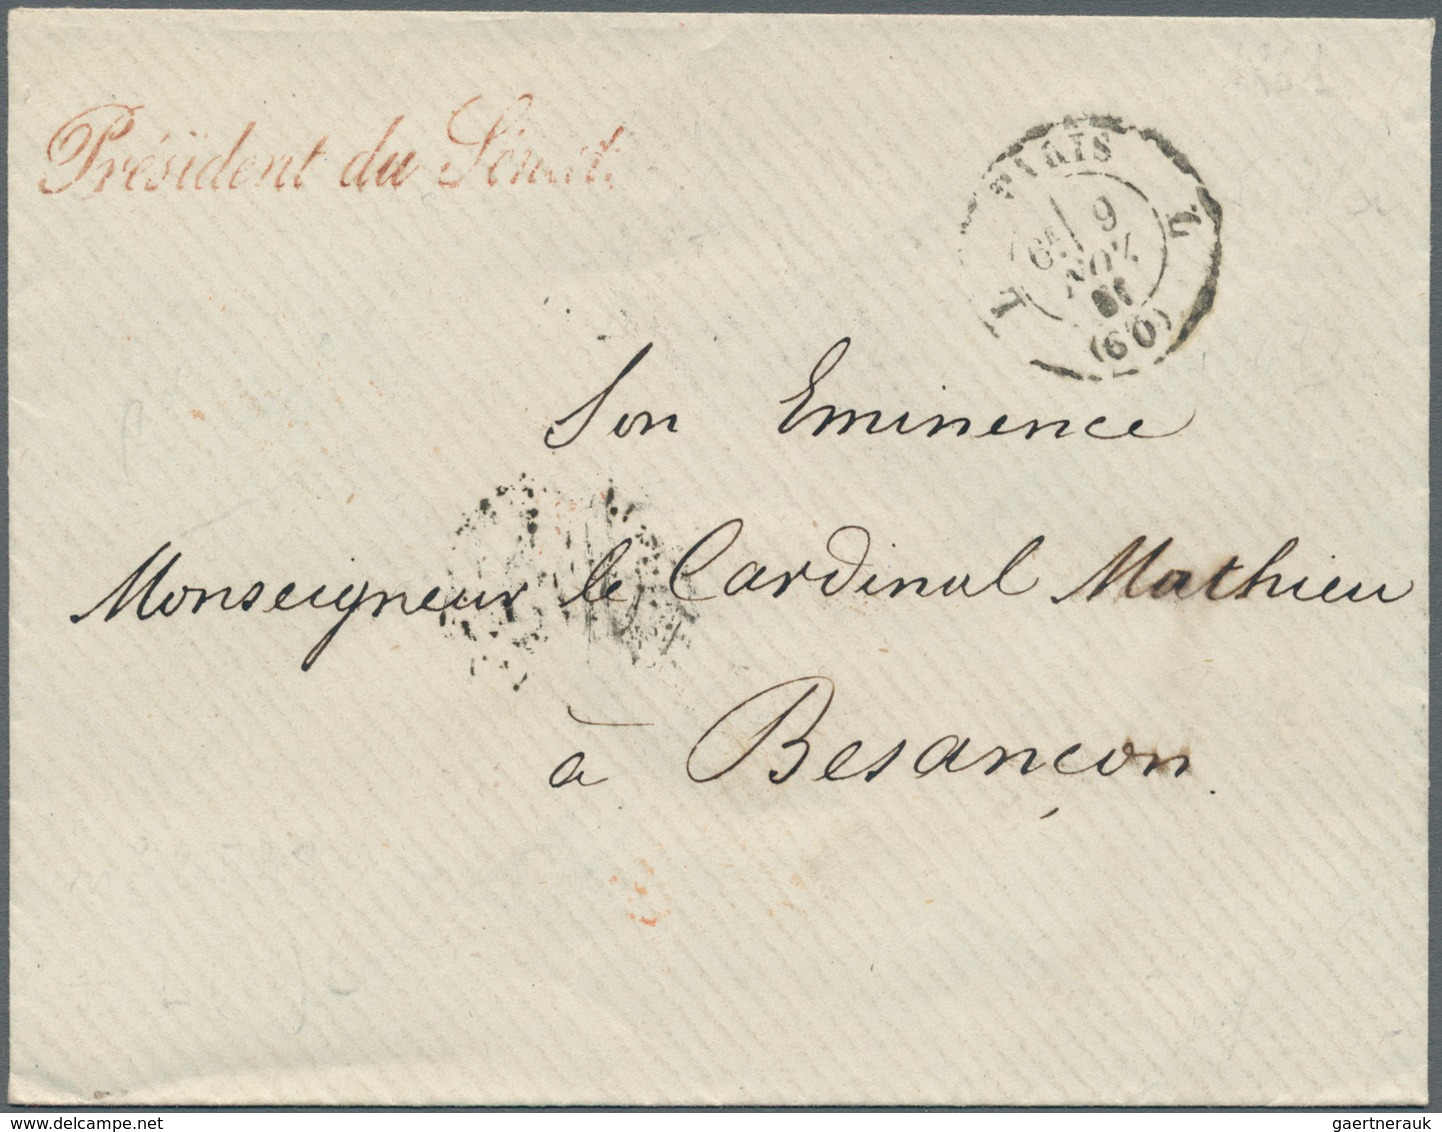 Président du Sénat.
PARIS
L L
6E 9
NOV.
61
(60)
Son Eminence
Monseigneur le Cardinal Mathieu
à Besançon.
gaertnerauk@delcampe.com